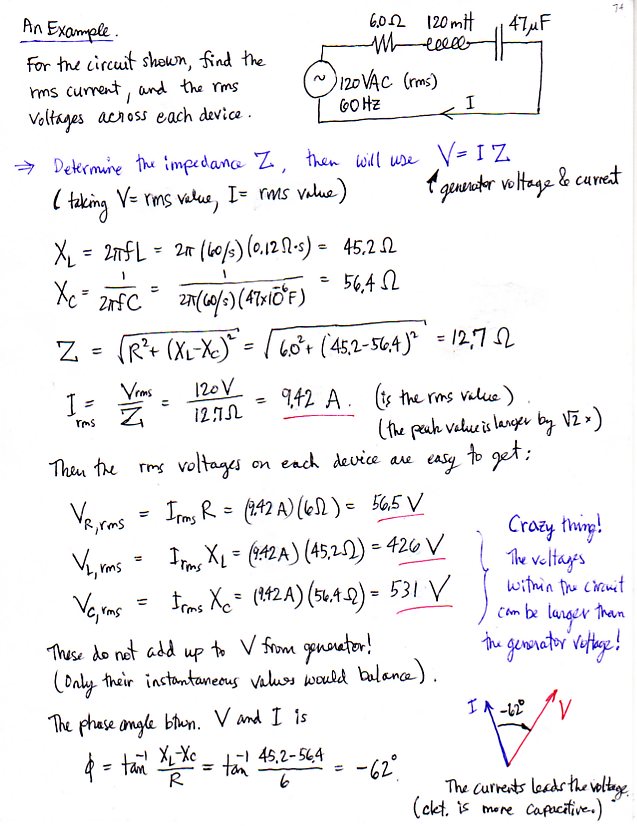 74
An Example.
For the circuit shown, find the
rms current, and the rms
voltages across each device.
6.0Ω 120mH 47μF
~ 120VAC (rms)
60Hz
I
⇒ Determine the impedance Z, then will use V = I Z
(taking V = rms value, I = rms value) ↑ generator voltage & current
X_L = 2πfL = 2π(60/s)(0.12Ω·s) = 45.2Ω
X_C = 1/(2πfC) = 1/(2π(60/s)(47×10^-6 F)) = 56.4Ω
Z = √(R²+(X_L-X_C)²) = √(6.0²+(45.2-56.4)²) = 12.7Ω
I_rms = V_rms/Z = 120V/12.7Ω = 9.42 A. (is the rms value).
(the peak value is larger by √2 ×)
Then the rms voltages on each device are easy to get:
V_R,rms = I_rms R = (9.42A)(6Ω) = 56.5 V
V_L,rms = I_rms X_L = (9.42A)(45.2Ω) = 426 V
V_C,rms = I_rms X_C = (9.42A)(56.4Ω) = 531 V
Crazy thing!
The voltages
within the circuit
can be larger than
the generator voltage!
These do not add up to V from generator!
(Only their instantaneous values would balance).
The phase angle btwn. V and I is
φ = tan^-1 (X_L-X_C)/R = tan^-1 (45.2-56.4)/6 = -62°.
I -62° V
The currents leads the voltage.
(ckt. is more capacitive.)